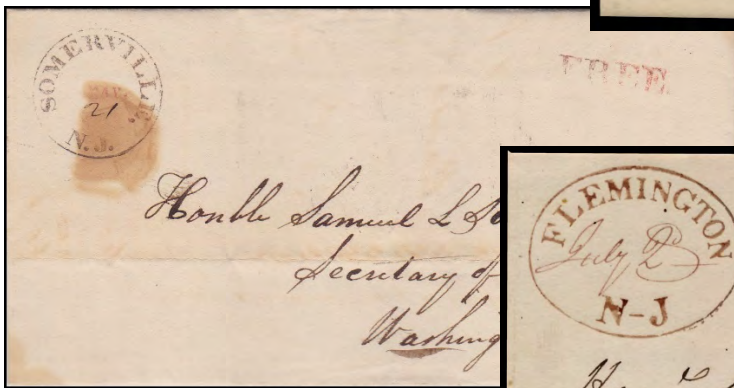 SOMERVILLE
21
N.J.
FREE
Honble Samuel L
Secretary of
Washing
FLEMINGTON
July 2
N-J